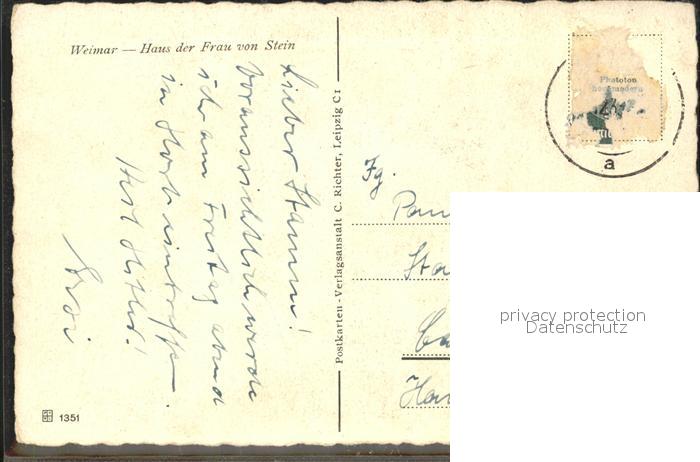 Weimar — Haus der Frau von Stein
Lieber Stamm!
Voraussichtlich werde
ich am Freitag abend
in Horb eintreffen.
Heil Hitler!
1351
Postkarten-Verlagsanstalt C. Richter, Leipzig C1
Phototon
a
Fg.
privacy protection
Datenschutz